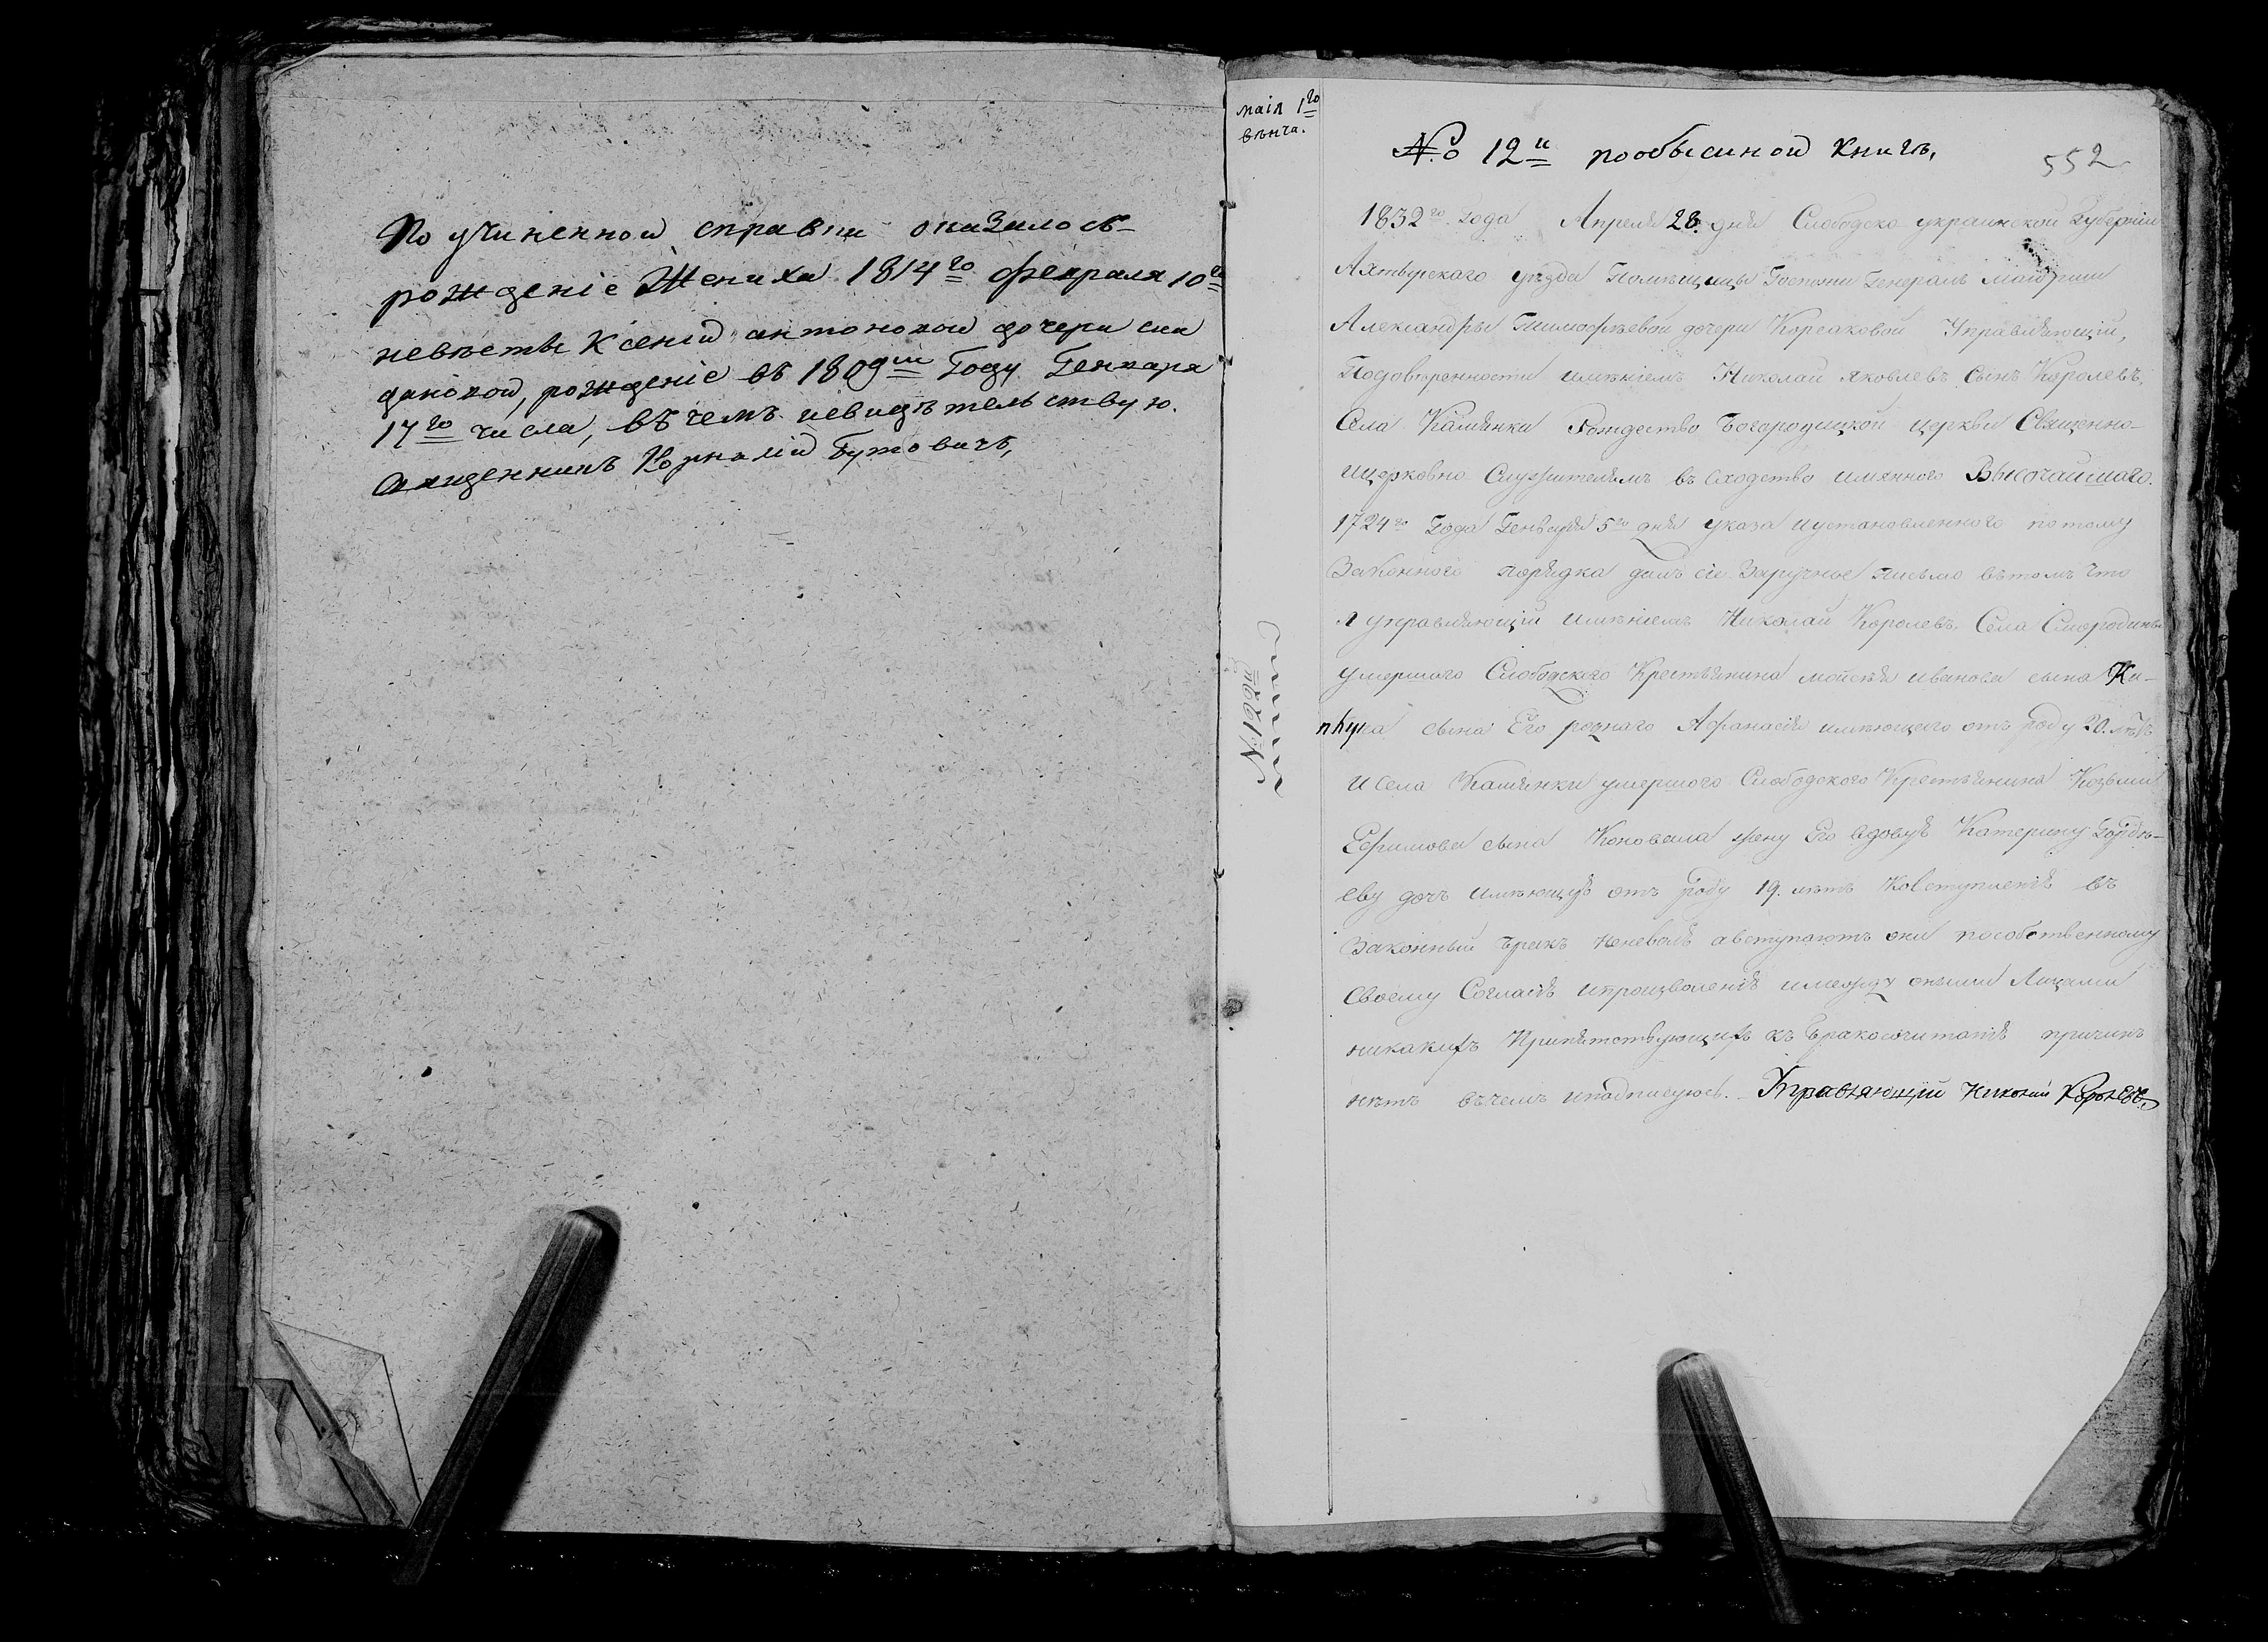 По учиненной справки оказалось
рожденіе Жениха 1814го февраля 10го
невесты Ксеніи антоновой дочери
дановой, рожденіе въ 1809м Году Генваря
17го числа, въ чемъ исвидѣтельствую.
Священникъ Корнилій Бутовичъ,
маія 1го
вѣнча.
№ 12й пообысиной книгѣ,
552
1832го Года Апреля 28. дня Слободско украинской Губерніи
Ахтырскаго уѣзда Помѣщицы Госпожи Генералъ маіорши
Александры Тимофѣевой дочери Корсаковой Управляющій,
Подовѣренности имѣніемъ Николай яковлевъ Сынъ Королевъ,
Села Камянки Рождество Богородицкой церкви Священно-
ицерковно Служителямъ въ Сходство имяннаго Высочайшаго
1724го Года Генваря 5го дня указа иустановленного потому
Законного порядка далъ сіе Заручное письмо вътомъ что
я управляющій имѣніемъ Николай Королевъ, Села Смородина
умершаго Слободского Крестьянина мойсея иванова сына
сына Его роднаго Афанасія имѣющего отъ роду 20. лѣтъ
и Села Камянки умершого Слободского Крестьянина Козьмы
Ефимова сына Коновала жену Его вдову Катерину Гордѣ-
еву дочь имѣющую отъ роду 19. лѣтъ Ковступленію въ
Законный бракъ авступаютъ они пособственному
Своему Согласію ипроизволенію имежду оными Лицами
никакихъ Припятствующихъ къ бракосочитанію причинъ
нѣтъ въчемъ иподписуюсь. Управляющій Николай Королевъ
№ 122й